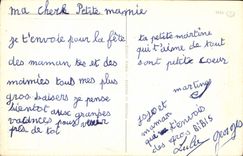 ma chere Petite mamie
je t'envoie pour la fête
des maman tes et des
mamies tous mes plus
gros baisers je pense
bientôt aux grandes
vacances pour
près de toi
ta petite martine
qui t'aime de tout
son petit coeur
martine
papa et
maman
t'envoie
des gros BiBis
Georges